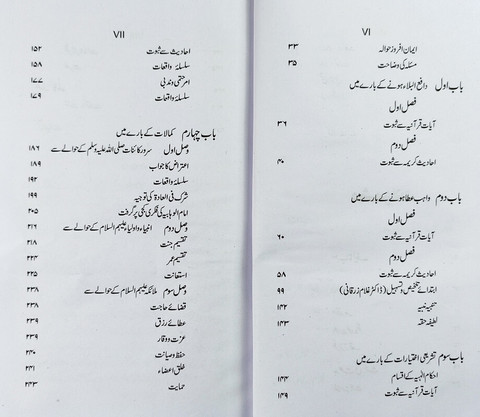 VI
ایمان افروز حوالہ ۳۳
مسئلہ کی وضاحت ۳۵
باب اول دافع البلاء ہونے کے بارے میں
فصل اول
آیات قرآنیہ سے ثبوت ۳۶
فصل دوم
احادیث کریمہ سے ثبوت ۴۰
باب دوم واہب عطا ہونے کے بارے میں
فصل اول
آیات قرآنیہ سے ثبوت ۶۰
فصل دوم
احادیث کریمہ سے ثبوت ۵۸
ابتدائے تلخیص و تسہیل (ڈاکٹر غلام زرقانی) ۹۹
تنبیہ نبیہ ۱۴۲
لطیفہ حقہ ۱۴۳
باب سوم تشریعی اختیارات کے بارے میں
احکام الٰہیہ کے اقسام ۱۴۴
آیات قرآنیہ سے ثبوت ۱۴۹
VII
احادیث سے ثبوت ۱۵۲
سلسلۂ واقعات ۱۵۸
امر حتمی و ندبی ۱۷۷
سلسلۂ واقعات ۱۷۹
باب چہارم کمالات کے بارے میں
وصل اول سرور کائنات صلی اللہ علیہ وسلم کے حوالے سے ۱۸۶
اعتراض کا جواب ۱۸۹
سلسلۂ واقعات ۱۹۲
شرک فی العادۃ کی توجیہ ۱۹۹
امام الوہابیہ کی فکری کجی پر گرفت ۲۰۵
وصل دوم انبیاء و اولیاء علیہم السلام کے حوالے سے ۲۱۶
تقسیم جنت ۲۱۸
تقسیم عمر ۲۲۴
استعانت ۲۲۵
وصل سوم ملائکہ علیہم السلام کے حوالے سے ۲۳۸
قضائے حاجت ۲۳۸
عطائے رزق ۲۳۹
عزت و وقار ۲۳۹
حفظ و صیانت ۲۴۰
خلق اعضاء ۲۴۱
حمایت ۲۴۳